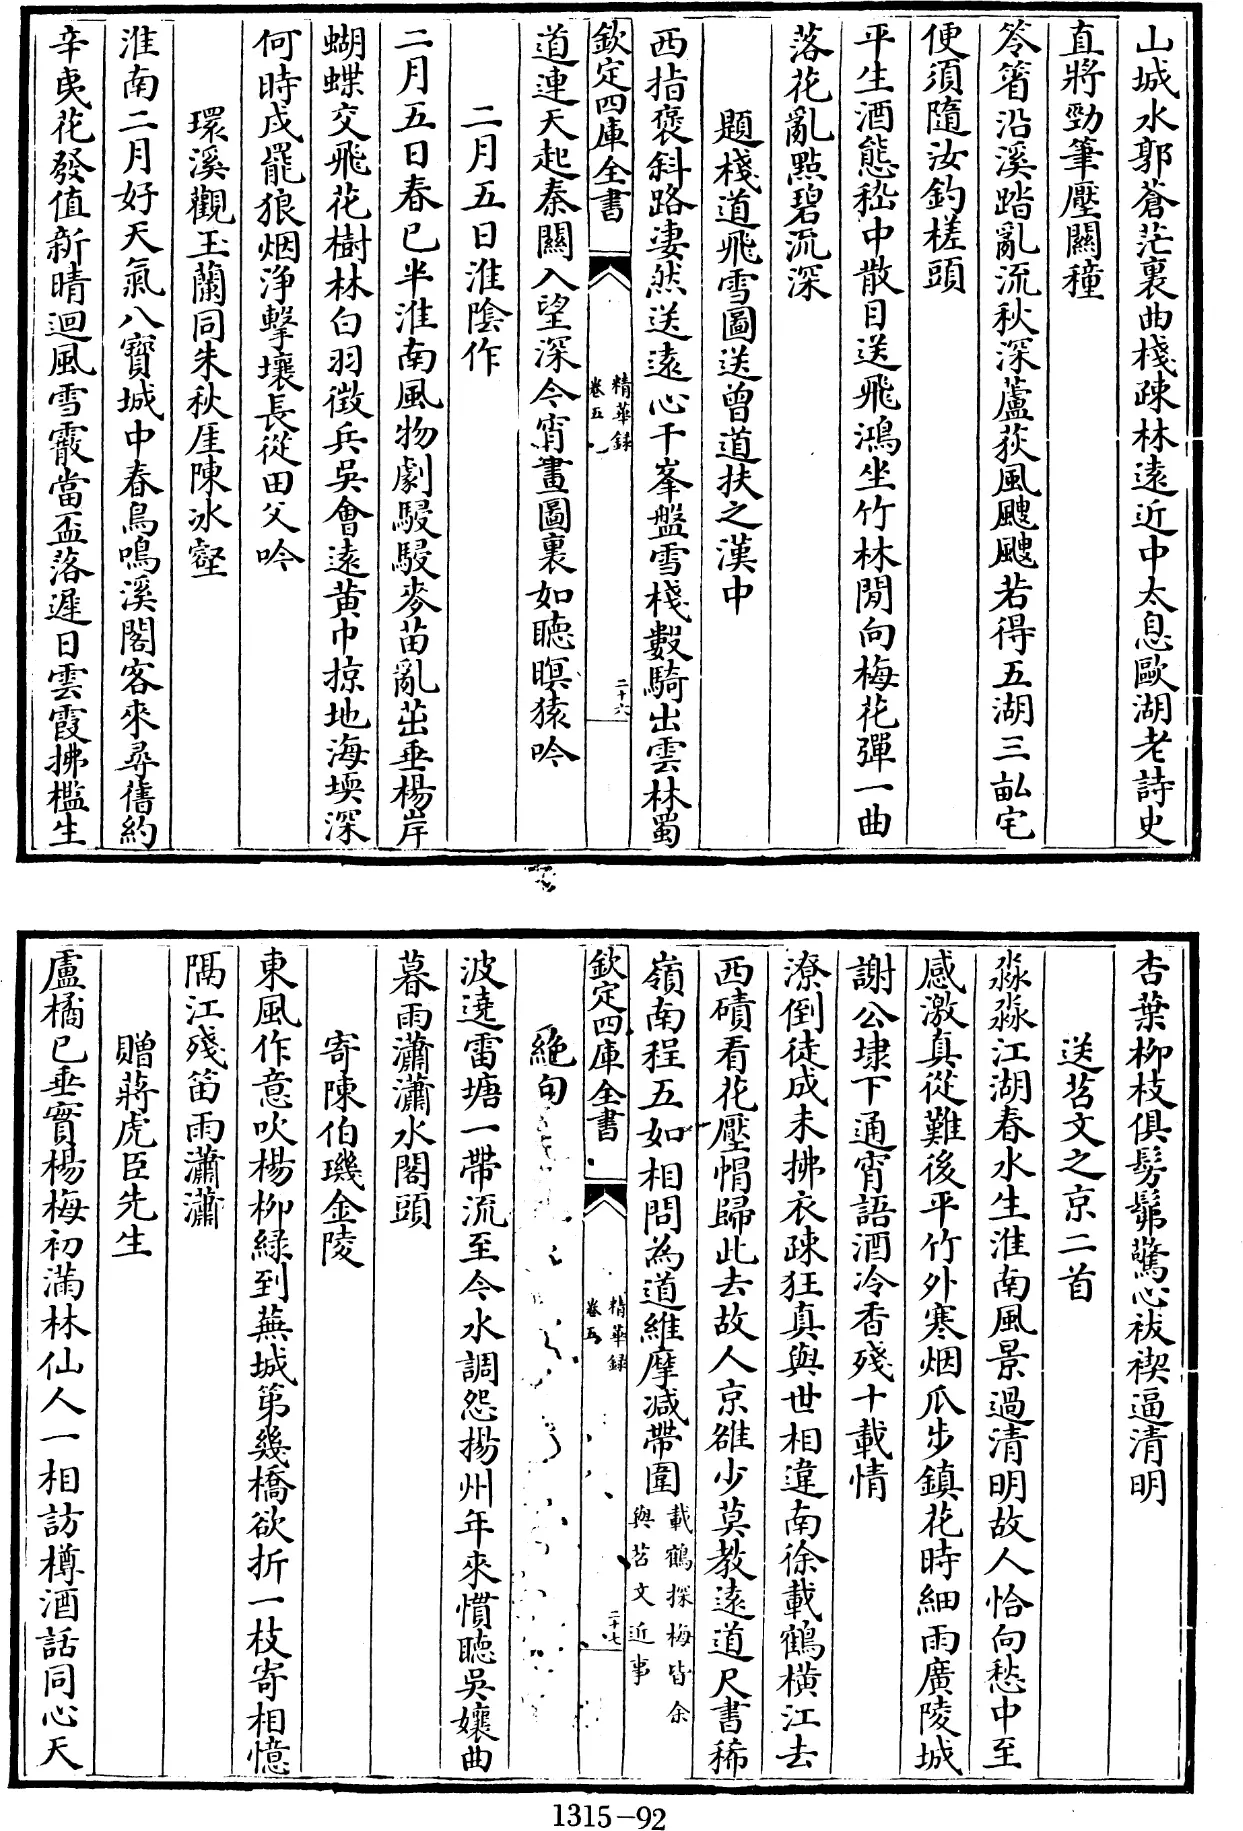 山城水郭蒼茫裏曲棧疎林遠近中太息歐湖老詩史
直將勁筆壓關穜
笭箵沿溪踏亂流秋深蘆荻風颼颼若得五湖三畝宅
便須隨汝釣槎頭
平生酒態嵇中散目送飛鴻坐竹林閒向梅花彈一曲
落花亂點碧流深
題棧道飛雪圖送曾道扶之漢中
西指褒斜路凄然送遠心千峯盤雪棧數騎出雲林蜀
欽定四庫全書
精華錄
卷五
二十六
道連天起秦關入望深今宵畫圖裏如聽暝猿吟
二月五日淮陰作
二月五日春已半淮南風物劇駸駸麥苗亂茁垂楊岸
蝴蝶交飛花樹林白羽徵兵吳會遠黄巾掠地海堧深
何時戍罷狼烟浄擊壤長從田父吟
環溪觀玉蘭同朱秋厓陳冰壑
淮南二月好天氣八寶城中春鳥鳴溪閣客來尋舊約
辛夷花發值新晴迴風雪霰當盃落遲日雲霞拂檻生
杏葉柳枝俱髣髴驚心祓禊逼清明
送苕文之京二首
淼淼江湖春水生淮南風景過清明故人恰向愁中至
感激真從難後平竹外寒烟瓜步鎮花時細雨廣陵城
謝公埭下通宵語酒冷香殘十載情
潦倒徒成未拂衣疎狂真與世相違南徐載鶴橫江去
西磧看花壓帽歸此去故人京雒少莫教遠道尺書稀
嶺南程五如相問為道維摩減帶圍
載鶴探梅皆余
與苕文近事
欽定四庫全書
精華錄
卷五
二十七
絶句
波遶雷塘一帶流至今水調怨揚州年來慣聽吳孃曲
暮雨瀟瀟水閣頭
寄陳伯璣金陵
東風作意吹楊柳緑到蕪城第幾橋欲折一枝寄相憶
隔江殘笛雨瀟瀟
贈蔣虎臣先生
盧橘已垂實楊梅初滿林仙人一相訪樽酒話同心天
1315-92